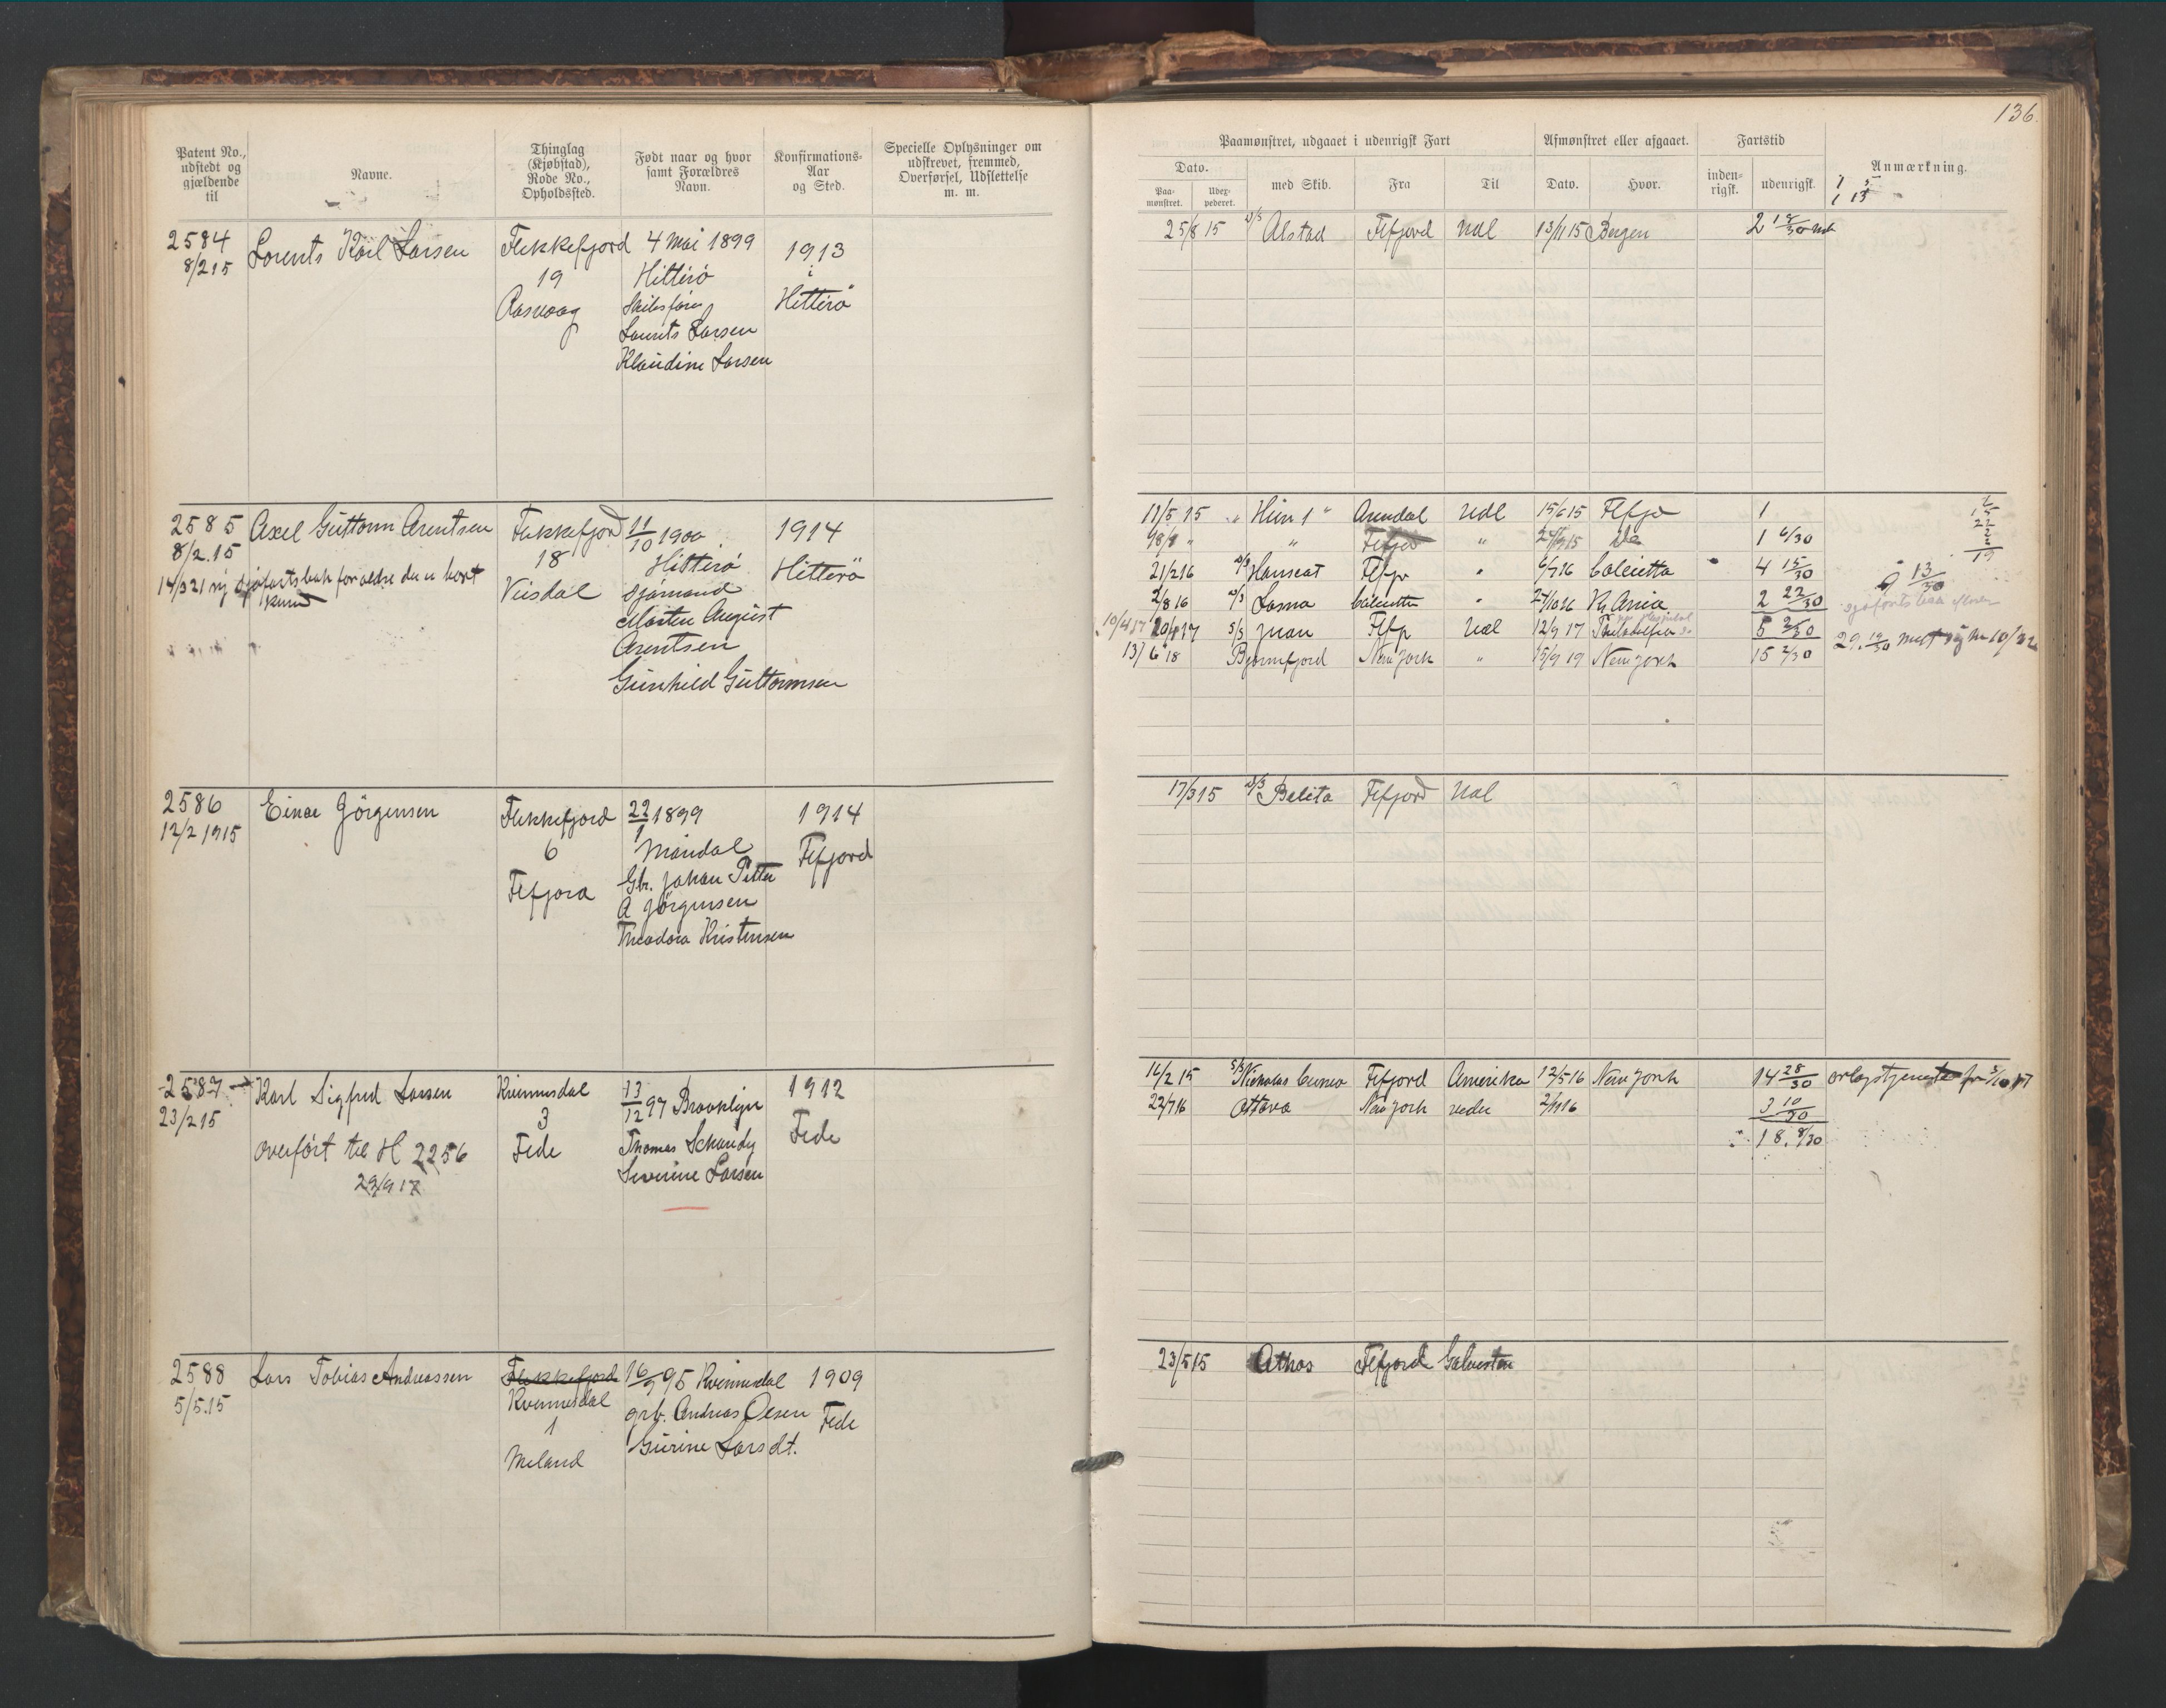 136.
Patent No., udstedt og gjældende til
Navne.
Thinglag (Kjøbstad), Rode No., Opholdssted.
Født naar og hvor samt Forældres Navn.
Konfirmations-Aar og Sted.
Specielle Oplysninger om udskrevet, fremmed, Overførsel, Udslettelse m. m.
Paamønstret, udgaaet i udenrigsk Fart
Afmønstret eller afgaaet.
Fartstid
Anmærkning.
Dato.
Paa-mønstret.
Udex-pederet.
med Skib.
Fra
Til
Dato.
Hvor.
inden-rigsk.
udenrigsk.
2584 Lorents Karl Larsen Flekkefjord 4 Mai 1899 1913
8/2 15 19 Hitterö i
Rasvaag Skibsfører Hitterö
Lauritz Larsen
Klaudine Larsen
25/8 15 D/S Alstad Flfjord Udl 13/11 15 Bergen 2 18/30 mdr
2585 Axel Guttorm Arentsen Flekkefjord 11/10 1900 1914
8/2.15 18 Hitterö Hitterö
14/3 21 ny sjöfartsbok for ældre der er bort
Veisdal Sjömand
Morten August
Arentsen
Gunhild Guttormsen
11/5 15 " Hein 1" Arendal Udl 15/6 15 Flfjo 1
18/8 " " Flfjo " 24/9 15 Do 1 6/30
21/2 16 D/S Hanseat Flfjo " 6/7 16 Calcutta 4 15/30
2/8 16 D/S Lasna Calcutta " 24/10 16 Kr.ania 2 22/30
10/4 17 20/4 17 S/S Juan Flfj Udl 12/9 17 Philadelfia 5 2/30
13/6 18 Bjørnefjord New York " 15/9 19 New York 15 2/30
2586 Einar Jörgensen Flekkefjord 22/1 1899 1914
12/2 1915 6 Mandal Flfjord
Flfjord Gbr. Johan Petter
A Jörgensen
Theodora Kristensen
17/3 15 D/S Belita Flfjord Udl
2587 Karl Sigfred Larsen Kvinnesdal 13/12 97 Brooklyn 1912
23/2 15 3 Fede
overfört til H 2256 Fede Thomas Schandy
29/9 17 Severine Larsen
16/2 15 S/S Nicholas Cuneo Flfjord Amerika 12/5 16 New York 14 28/30 orlogstjeneste fra 5/10 17
22/7 16 Ottava New York videre 2/11 16 3 10/30
18. 8/30
2588 Lars Tobias Andreassen Flekkefjord 16/9 95 Kvinnesdal 1909
5/5.15 Kvinnesdal grb. Andreas Olsen Fede
1 Gurine Larsdt.
Meland
23/5 15 Athos Flfjord Galveston